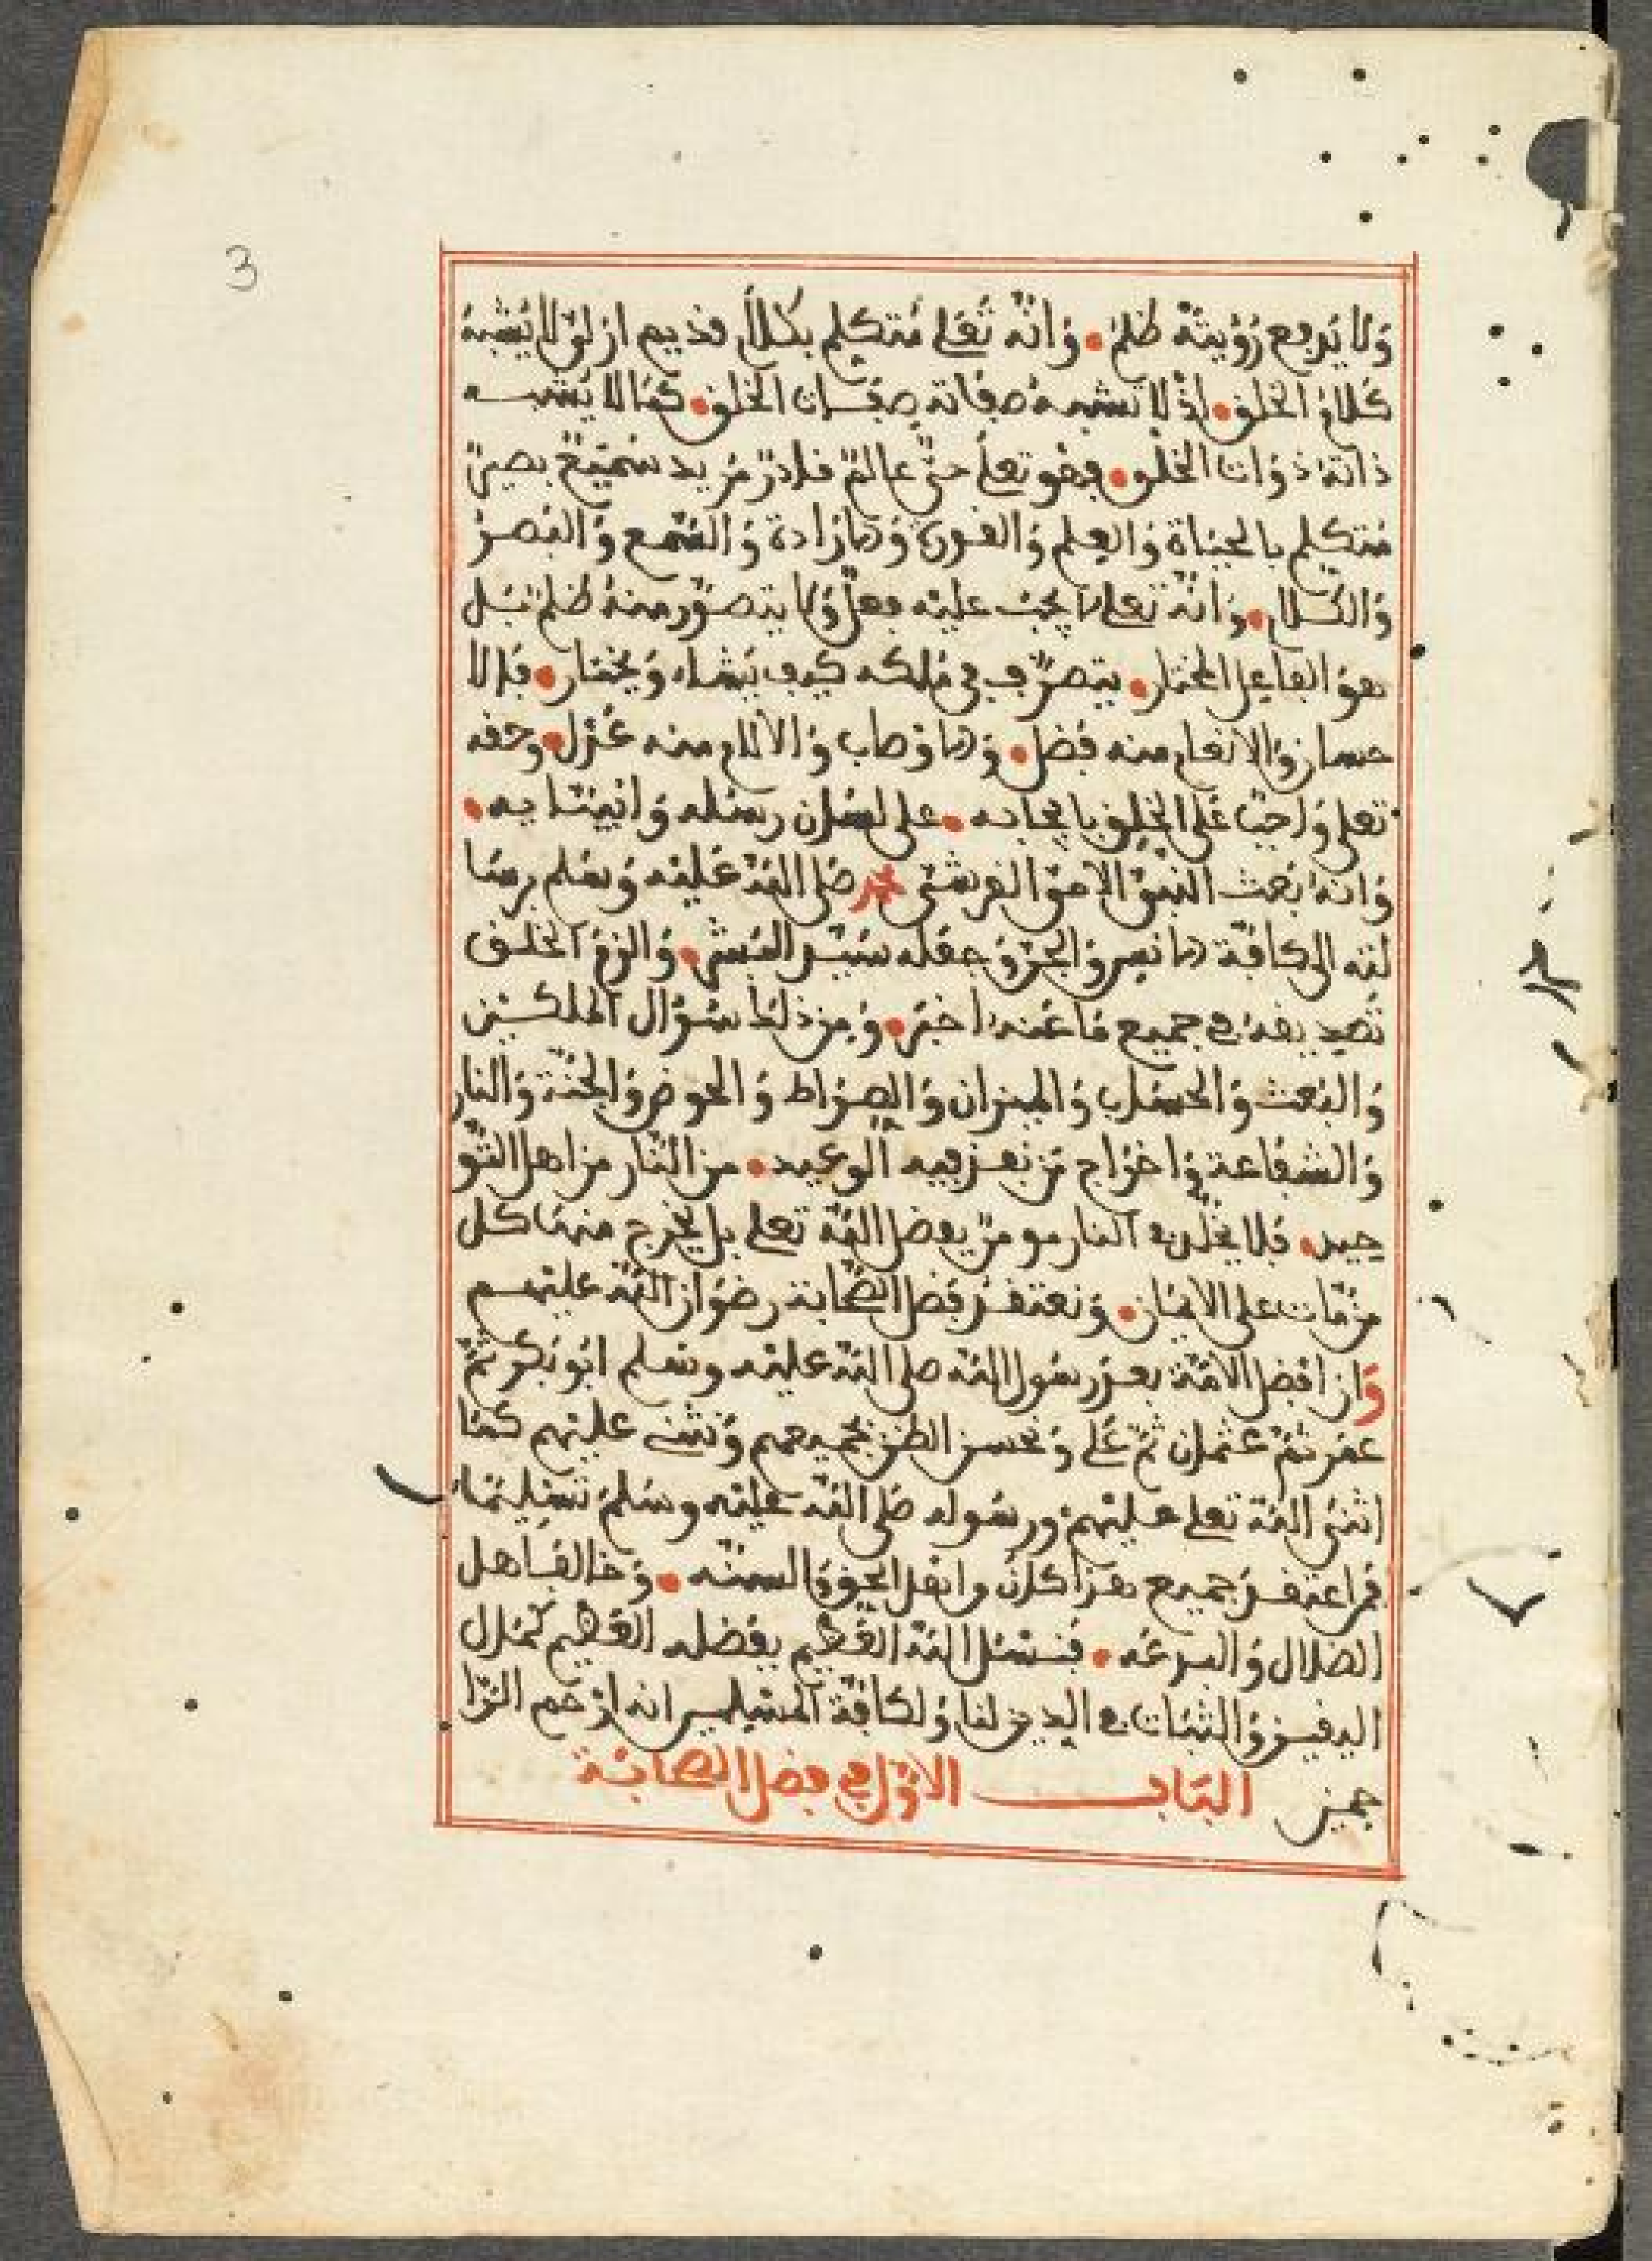 3
ولا يدفع رؤيته ظلم • وانه تعلى متكلم بكلام قديم ازلي لا يشبه
كلام الخلق • اذ لا تشبه صفاته صفات الخلق • كما لا يشبه
ذاته ذوات الخلق • فهو تعلى حي عالم قادر مريد سميع بصير
متكلم بالحياة والعلم والقدرة والارادة والسمع والبصر
والكلام • وانه تعلى لا يجب عليه فعل ولا يتصور منه ظلم بل
هو الفاعل المختار • يتصرف في ملكه كيف يشاء ويختار • فالا
حسان والانعام منه فضل • والاوصاب والالام منه عدل • وحقه
تعلى واجب على الخلق بايجابه • على لسان رسله وانبيايه •
وانه بعث النبي الامي القرشي محمد صلى الله عليه وسلم برسا
لته الى كافة الانس والجن وجعله سيد البشر • والزم الخلق
تصديقه في جميع ما عنه اخبر • ومن ذلك سؤال الملكين
والبعث والحساب والميزان والصراط والحوض والجنة والنار
والشفاعة واخراج من نفذ فيه الوعيد • من النار من اهل التو
حيد • فلا يخلد في النار مومن بفضل الله تعلى بل يخرج منها كل
من مات على الايمان • ونعتقد فضل الصحابة رضوان الله عليهم
وان افضل الامة بعد رسول الله صلى الله عليه وسلم ابو بكر ثم
عمر ثم عثمان ثم علي ونحسن الظن بجميعهم ونثني عليهم كما
اثنى الله تعلى عليهم ورسوله صلى الله عليه وسلم تسليما
فمن اعتقد جميع هذا كان وافق الحق والسنه • وخالف اهل
الضلال والبدعه • فنسئل الله العظيم بفضله العظيم كمال
اليقين والثبات في الدين لنا ولكافة المسلمين انه ارحم الرا
حمين البـاب الاول في فضل الصحابة